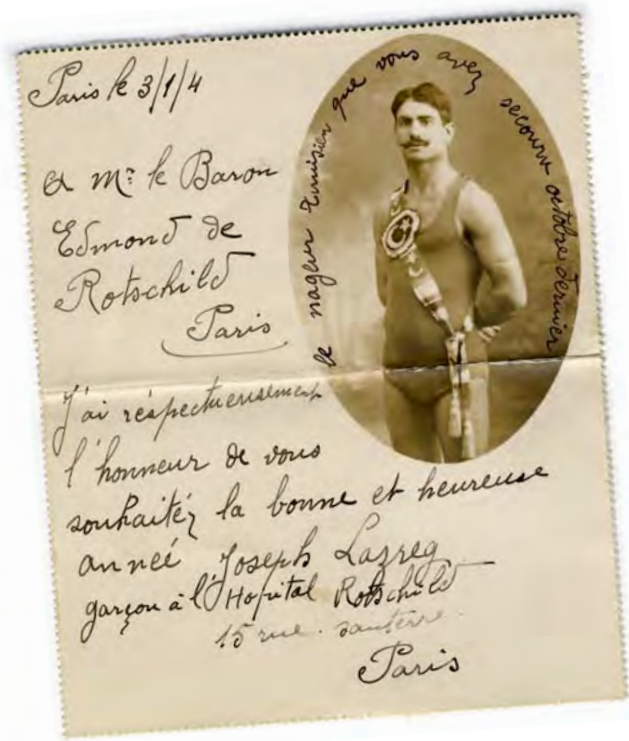 Paris le 3/1/4
a Mr. le Baron
Edmond de
Rotschild
Paris
le nageur Tunisien que vous avez secouru octobre dernier
J'ai réspectueusement
l'honneur de vous
souhaitéz la bonne et heureuse
anneé Joseph Lazreg
garçon à l'Hopital Rotschild
15 rue. santerre.
Paris